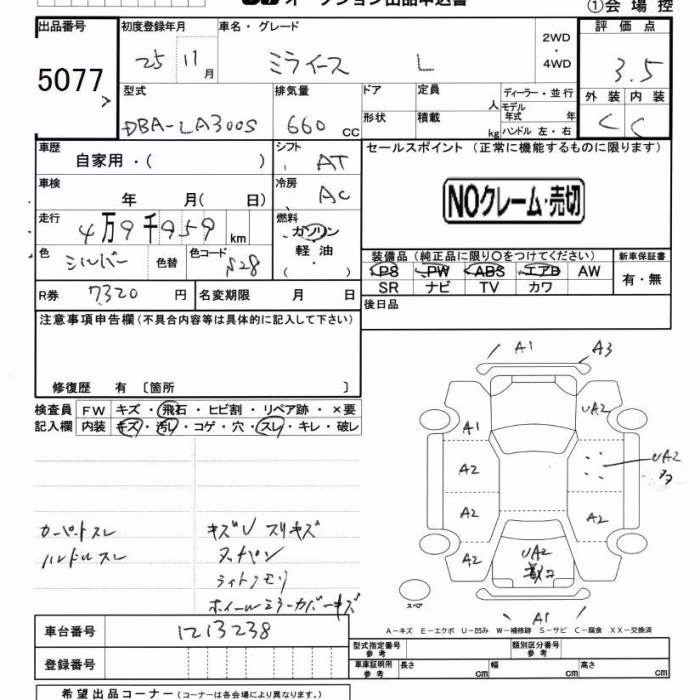 オークション出品申込書 ①会場控
出品番号 初度登録年月 車名・グレード 2WD ・ 4WD 評価点
5077 25 11月 ミライース L 3.5
型式 排気量 ドア 定員 人 ディーラー・並行 外装 内装
DBA-LA300S 660 cc 形状 積載 kg モデル年式 年 ハンドル 左・右 C C
車歴 自家用・( ) シフト AT セールスポイント (正常に機能するものに限ります)
車検 年 月( 日) 冷房 AC NOクレーム・売切
走行 4万9千959 km 燃料 ガソリン 軽油 ( ・ )
色 シルバー 色替 色コード S28 装備品 (純正品に限り○をつけてください) 新車保証書
PS PW ABS エアB AW 有・無
SR ナビ TV カワ
R券 7,320 円 名変期限 月 日 後日品
注意事項申告欄 (不具合内容等は具体的に記入して下さい)
修復歴 有 〔箇所 〕
検査員 FW キズ・飛石・ヒビ割・リペア跡・×要
記入欄 内装 キズ・汚レ・コゲ・穴・スレ・キレ・破レ
カーペットスレ キズU スリキズ
ハンドルスレ スペアパン
ライトクモリ
ホイールミラーカバーキズ
A1 A3
UA2
A1
A2 UA2
A2 A2
A2 UA2
A1
スペア
A-キズ E-エクボ U-凹み W-補修跡 S-サビ C-腐食 XX-交換済
車台番号 1213238
登録番号
型式指定番号 参考 類別区分番号 参考
車庫証明用 参考 長さ cm 幅 cm 高さ cm
希望出品コーナー (コーナーは各会場により異なります。)